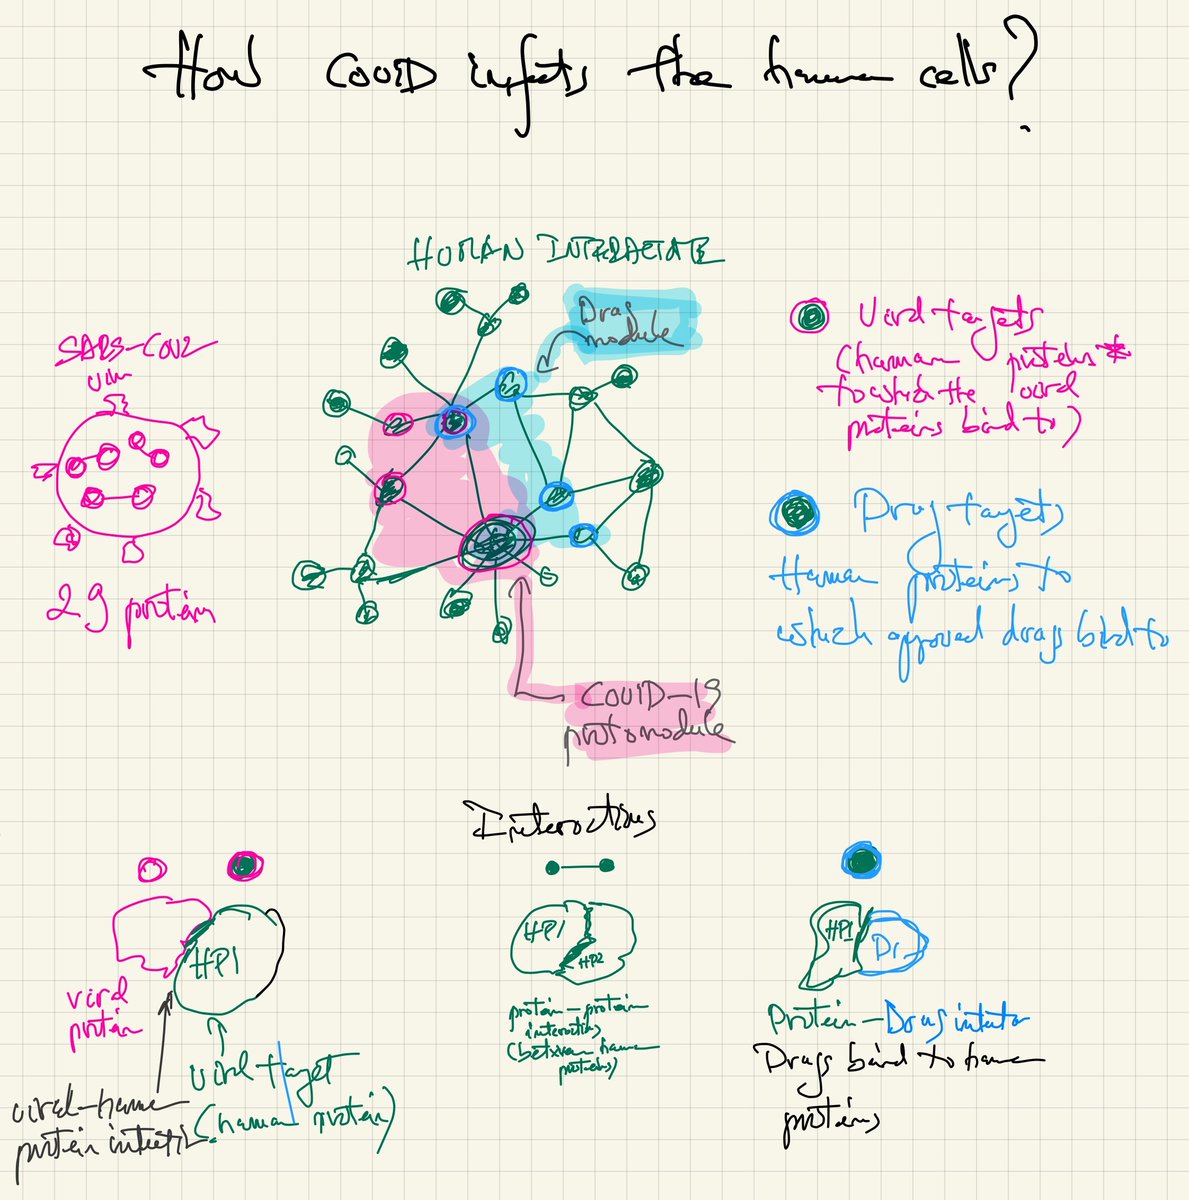 How COVID infects the human cells?
HUMAN INTERACTOME
Drug
module
SARS-COV2
29 protein
Viral targets
(human proteins
to which the viral
proteins bind to)
Drug targets
Human proteins to
which approved drugs bind to
COVID-19
protomodule
Interactions
HP1
viral
protein
viral target
(human protein)
viral-human
protein
HP1
HP2
protein-protein
interactions
(between human
proteins)
HP1
Dr
Protein-Drug
Drugs bind to human
proteins